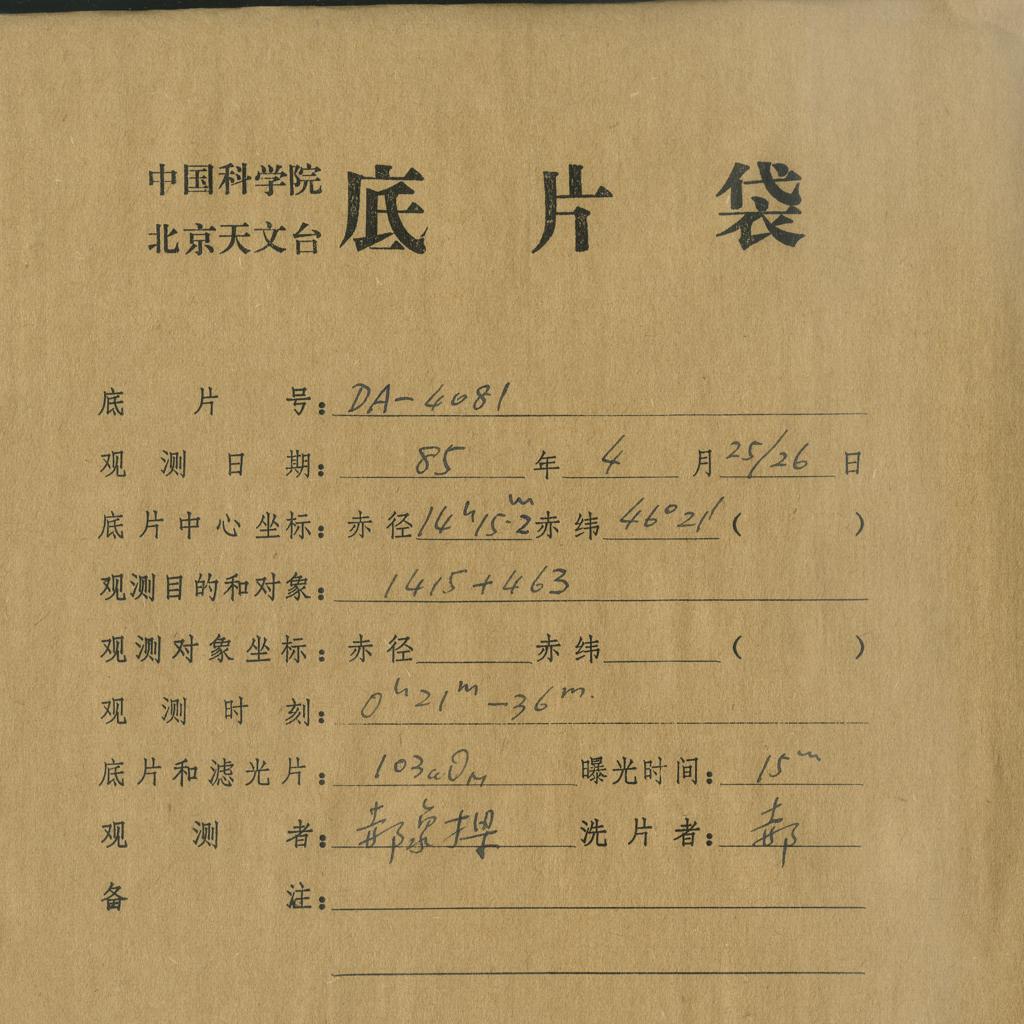 中国科学院
北京天文台
底片袋
底片号: DA-4081
观测日期: 85 年 4 月 25/26 日
底片中心坐标: 赤径 14ʰ15.2ᵐ 赤纬 46°21′ ( )
观测目的和对象: 1415+463
观测对象坐标: 赤径 赤纬 ( )
观测时刻: 0ʰ21ᵐ-36ᵐ.
底片和滤光片: 103aO 曝光时间: 15ᵐ
观测者: 郝象樑 洗片者: 郝
备注: